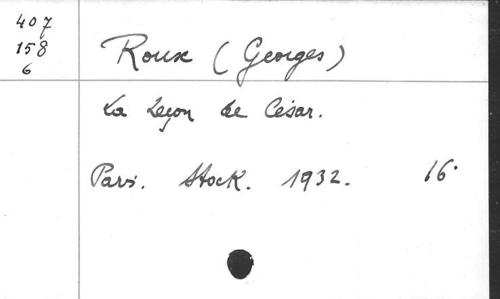 407
158
6
Roux (Georges)
La Leçon de César.
Paris. Stock. 1932. 16°